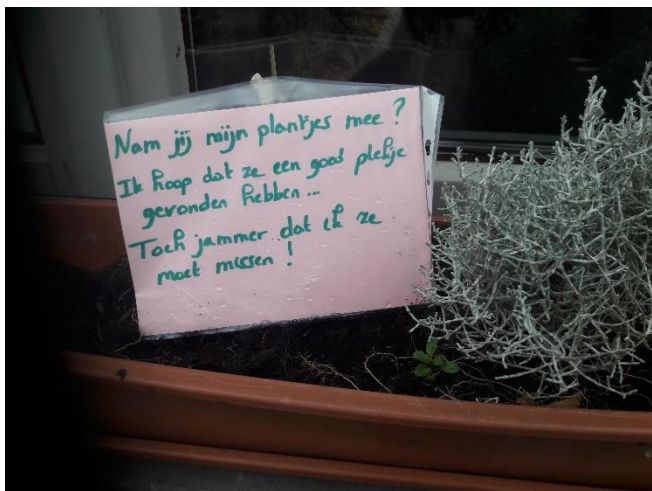 Nam jij mijn plantjes mee ?
Ik hoop dat ze een goed plekje
gevonden hebben ...
Toch jammer dat ik ze
moet missen !